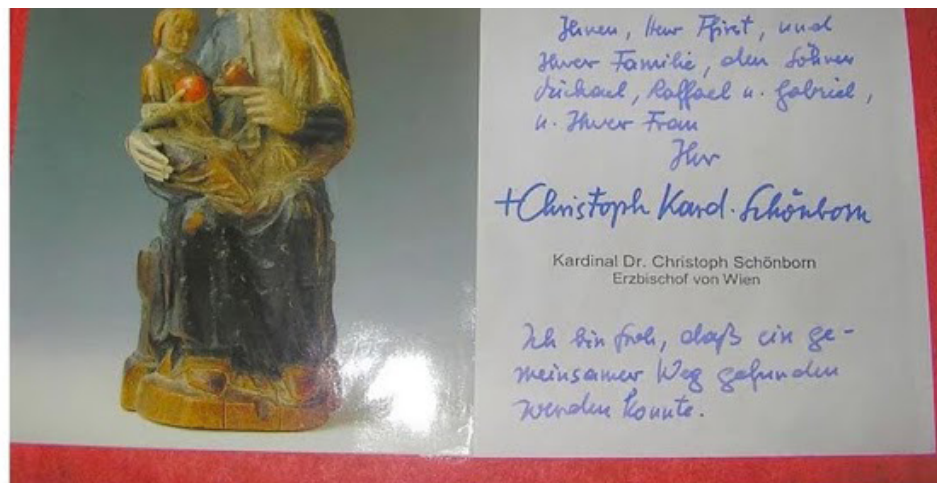 Ihnen, Herr Pfirst, und
Ihrer Familie, den Söhnen
Michael, Raffael u. Gabriel,
u. Ihrer Frau
Ihr
+Christoph Kard. Schönborn
Kardinal Dr. Christoph Schönborn
Erzbischof von Wien
Ich bin froh, daß ein ge-
meinsamer Weg gefunden
werden konnte.